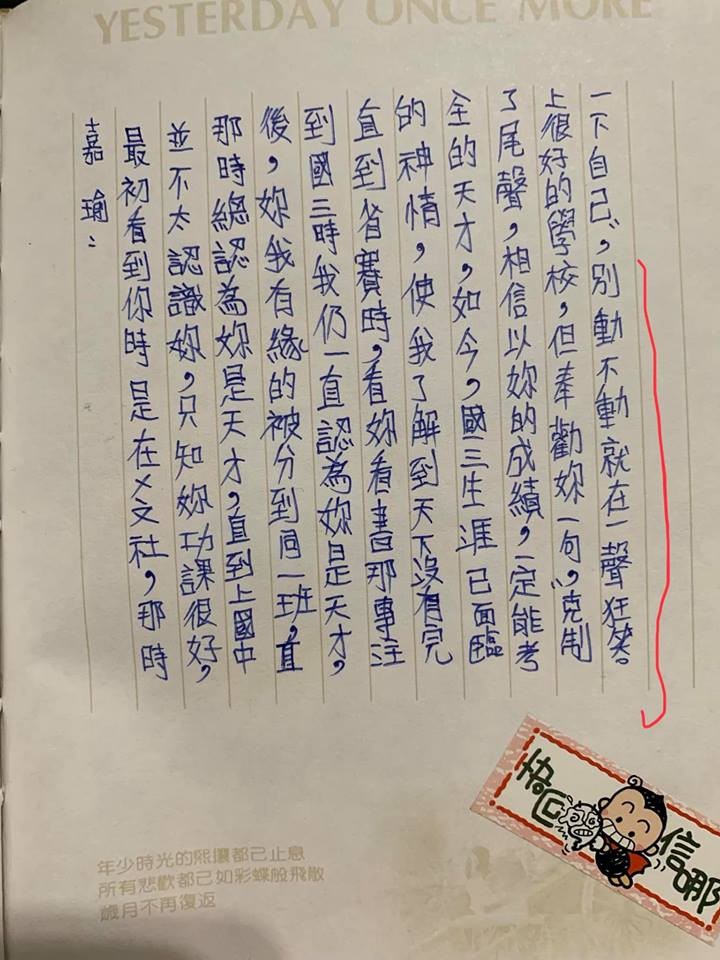 YESTERDAY ONCE MORE
嘉瑜:
最初看到你時是在ㄨ文社,那時
並不太認識妳,只知妳功課很好,
那時總認為妳是天才,直到上國中
後,妳我有緣的被分到同一班,直
到國三時我仍一直認為妳是天才,
直到省賽時,看妳看書那專注
的神情,使我了解到天下沒有完
全的天才,如今,國三生涯已面臨
了尾聲,相信以妳的成績,一定能考
上很好的學校,但奉勸妳一句,"克制
一下自己",別動不動就在一聲狂笑。
快回信哪
年少時光的熙攘都已止息
所有悲歡都已如彩蝶般飛散
歲月不再復返